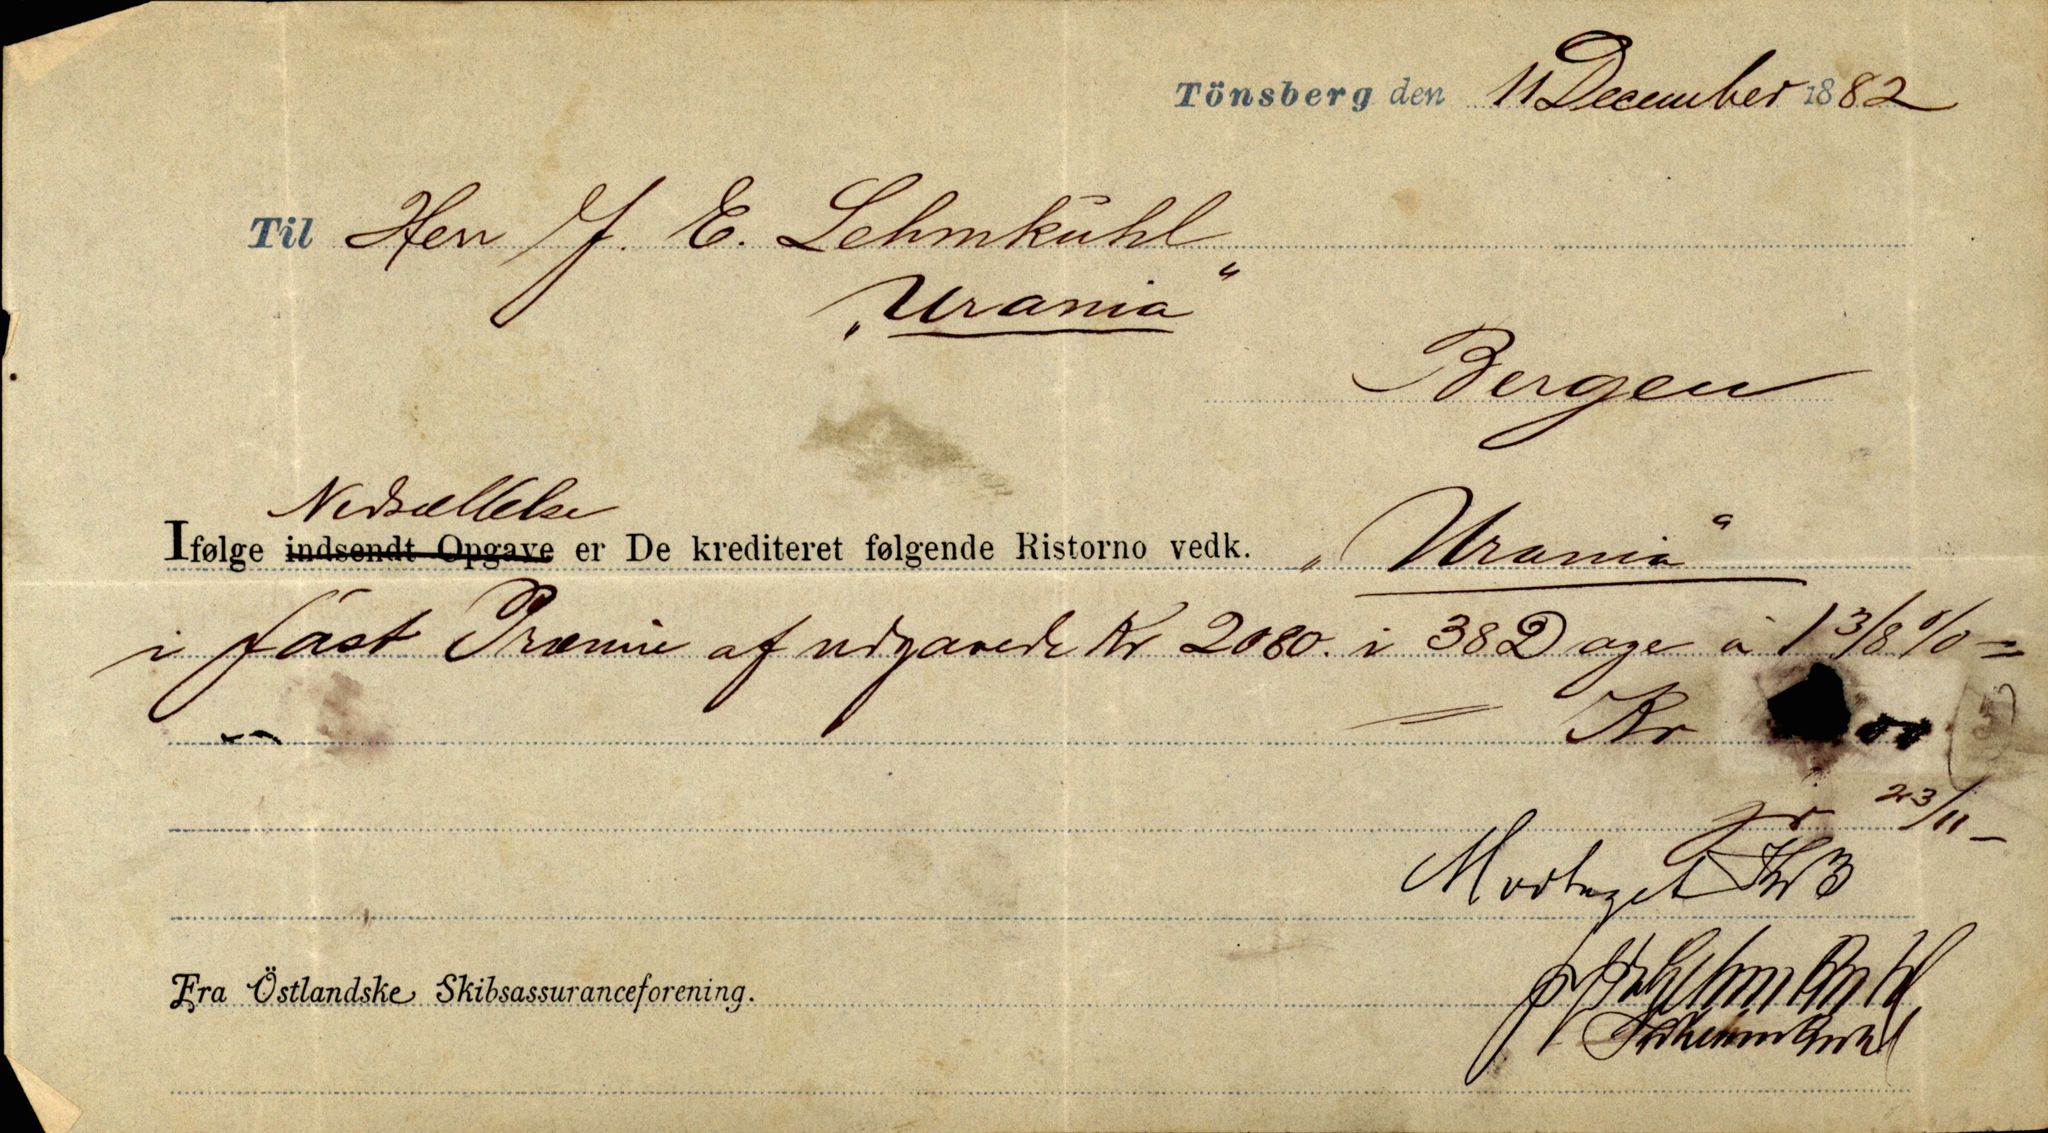 Tönsberg den 11 December 1882
Til Herr J. E. Lehmkuhl
„Urania“
Bergen
Nedsættelse
Ifølge indsendt Opgave er De krediteret følgende Ristorno vedk. „Urania“
i fast Præmie af udgavede Kr 2080. i 382 Dage à 1 3/8 % =
= Kr
pr 23/11 -
Modtaget Kr 3
Fra Östlandske Skibsassuranceforening.